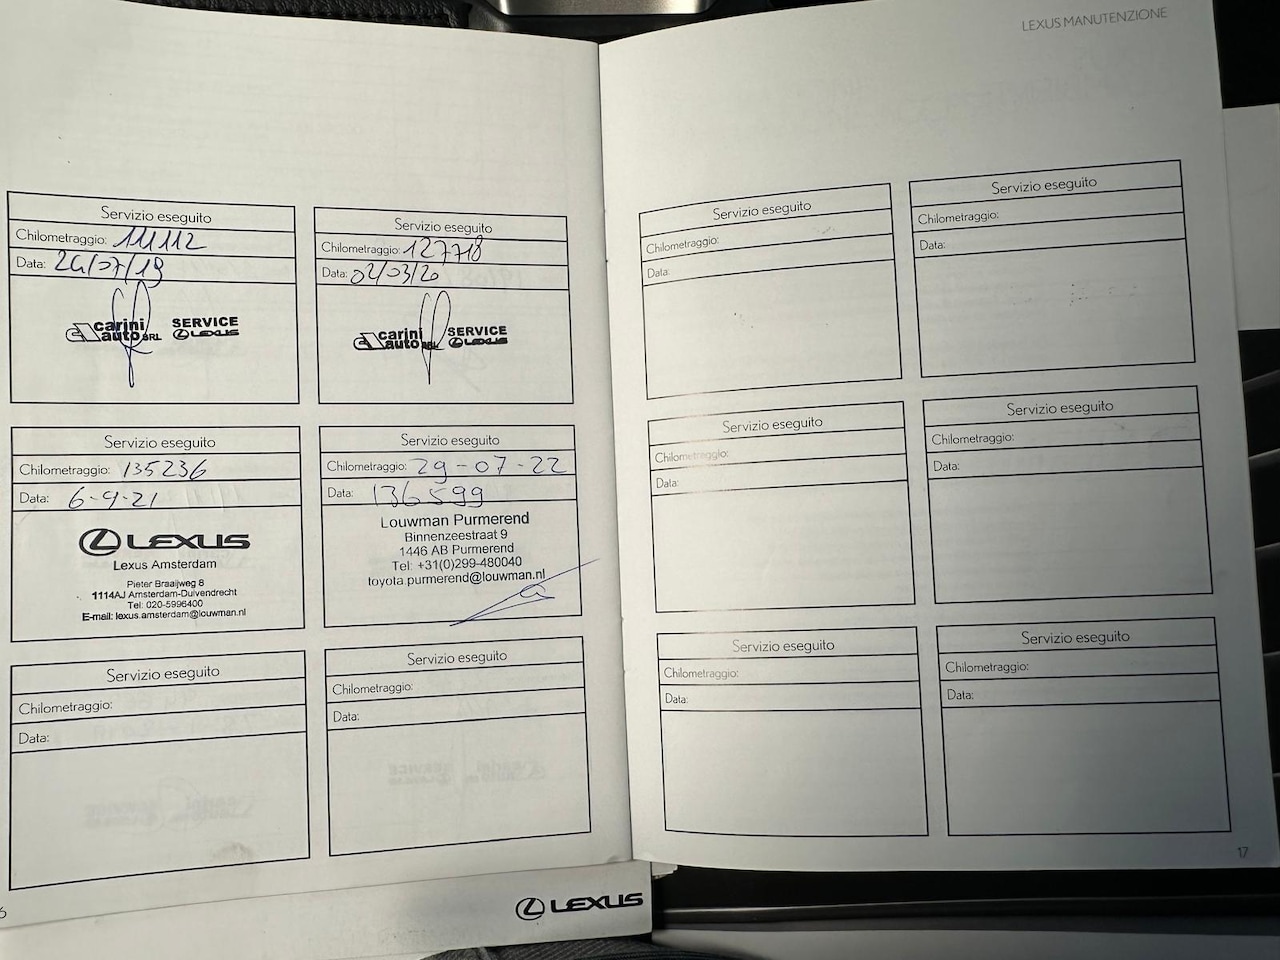 LEXUS MANUTENZIONE
Servizio eseguito
Chilometraggio: 111112
Data: 24/07/19
carini auto SRL SERVICE LEXUS
Servizio eseguito
Chilometraggio: 127718
Data: 02/03/20
carini auto SRL SERVICE LEXUS
Servizio eseguito
Chilometraggio: 135236
Data: 6-9-21
LEXUS
Lexus Amsterdam
Pieter Braaijweg 8
1114AJ Amsterdam-Duivendrecht
Tel: 020-5996400
E-mail: lexus.amsterdam@louwman.nl
Servizio eseguito
Chilometraggio: 29-07-22
Data: 136599
Louwman Purmerend
Binnenzeestraat 9
1446 AB Purmerend
Tel: +31(0)299-480040
toyota.purmerend@louwman.nl
Servizio eseguito
Chilometraggio:
Data:
Servizio eseguito
Chilometraggio:
Data:
Servizio eseguito
Chilometraggio:
Data:
Servizio eseguito
Chilometraggio:
Data:
Servizio eseguito
Chilometraggio:
Data:
Servizio eseguito
Chilometraggio:
Data:
Servizio eseguito
Chilometraggio:
Data:
Servizio eseguito
Chilometraggio:
Data:
6
17
LEXUS